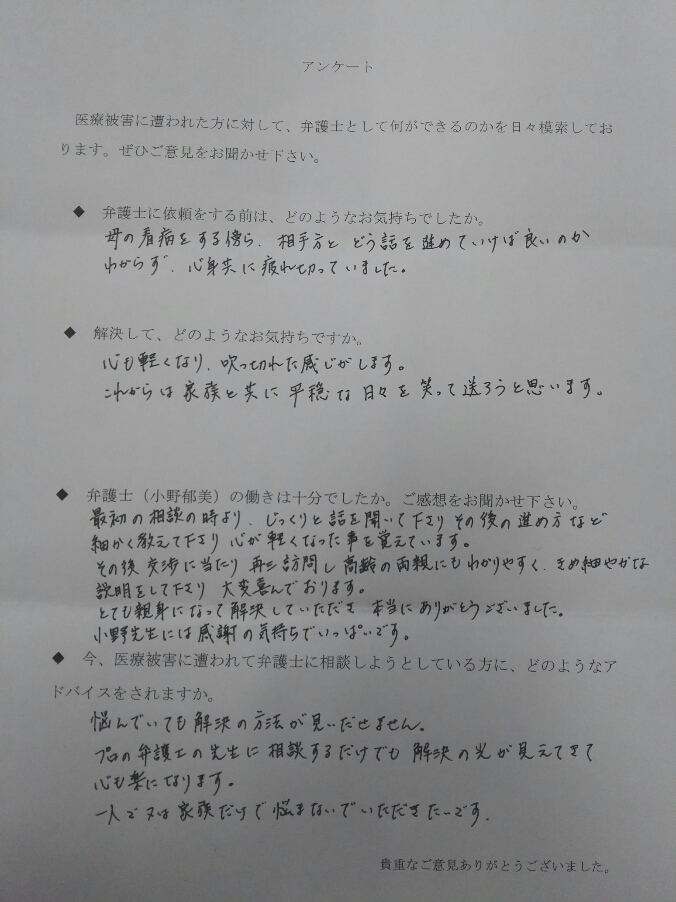 アンケート
医療被害に遭われた方に対して、弁護士として何ができるのかを日々模索してお
ります。ぜひご意見をお聞かせ下さい。
◆ 弁護士に依頼をする前は、どのようなお気持ちでしたか。
母の看病をする傍ら、相手方と どう話を進めていけば良いのか
わからず、心身共に疲れ切っていました。
◆ 解決して、どのようなお気持ちですか。
心も軽くなり、吹っ切れた感じがします。
これからは家族と共に平穏な日々を笑って送ろうと思います。
◆ 弁護士（小野郁美）の働きは十分でしたか。ご感想をお聞かせ下さい。
最初の相談の時より、じっくりと話を聞いて下さり その後の進め方など
細かく教えて下さり 心が軽くなった事を覚えています。
その後 交渉に当たり 再三訪問し 高齢の両親にもわかりやすく、きめ細やかな
説明をして下さり 大変喜んでおります。
とても親身になって解決していただき 本当にありがとうございました。
小野先生には感謝の気持ちでいっぱいです。
◆ 今、医療被害に遭われて弁護士に相談しようとしている方に、どのようなア
ドバイスをされますか。
悩んでいても解決の方法が見いだせません。
プロの弁護士の先生に相談するだけでも 解決の光が見えてきて
心も楽になります。
一人で又は家族だけで悩まないでいただきたいです.
貴重なご意見ありがとうございました。